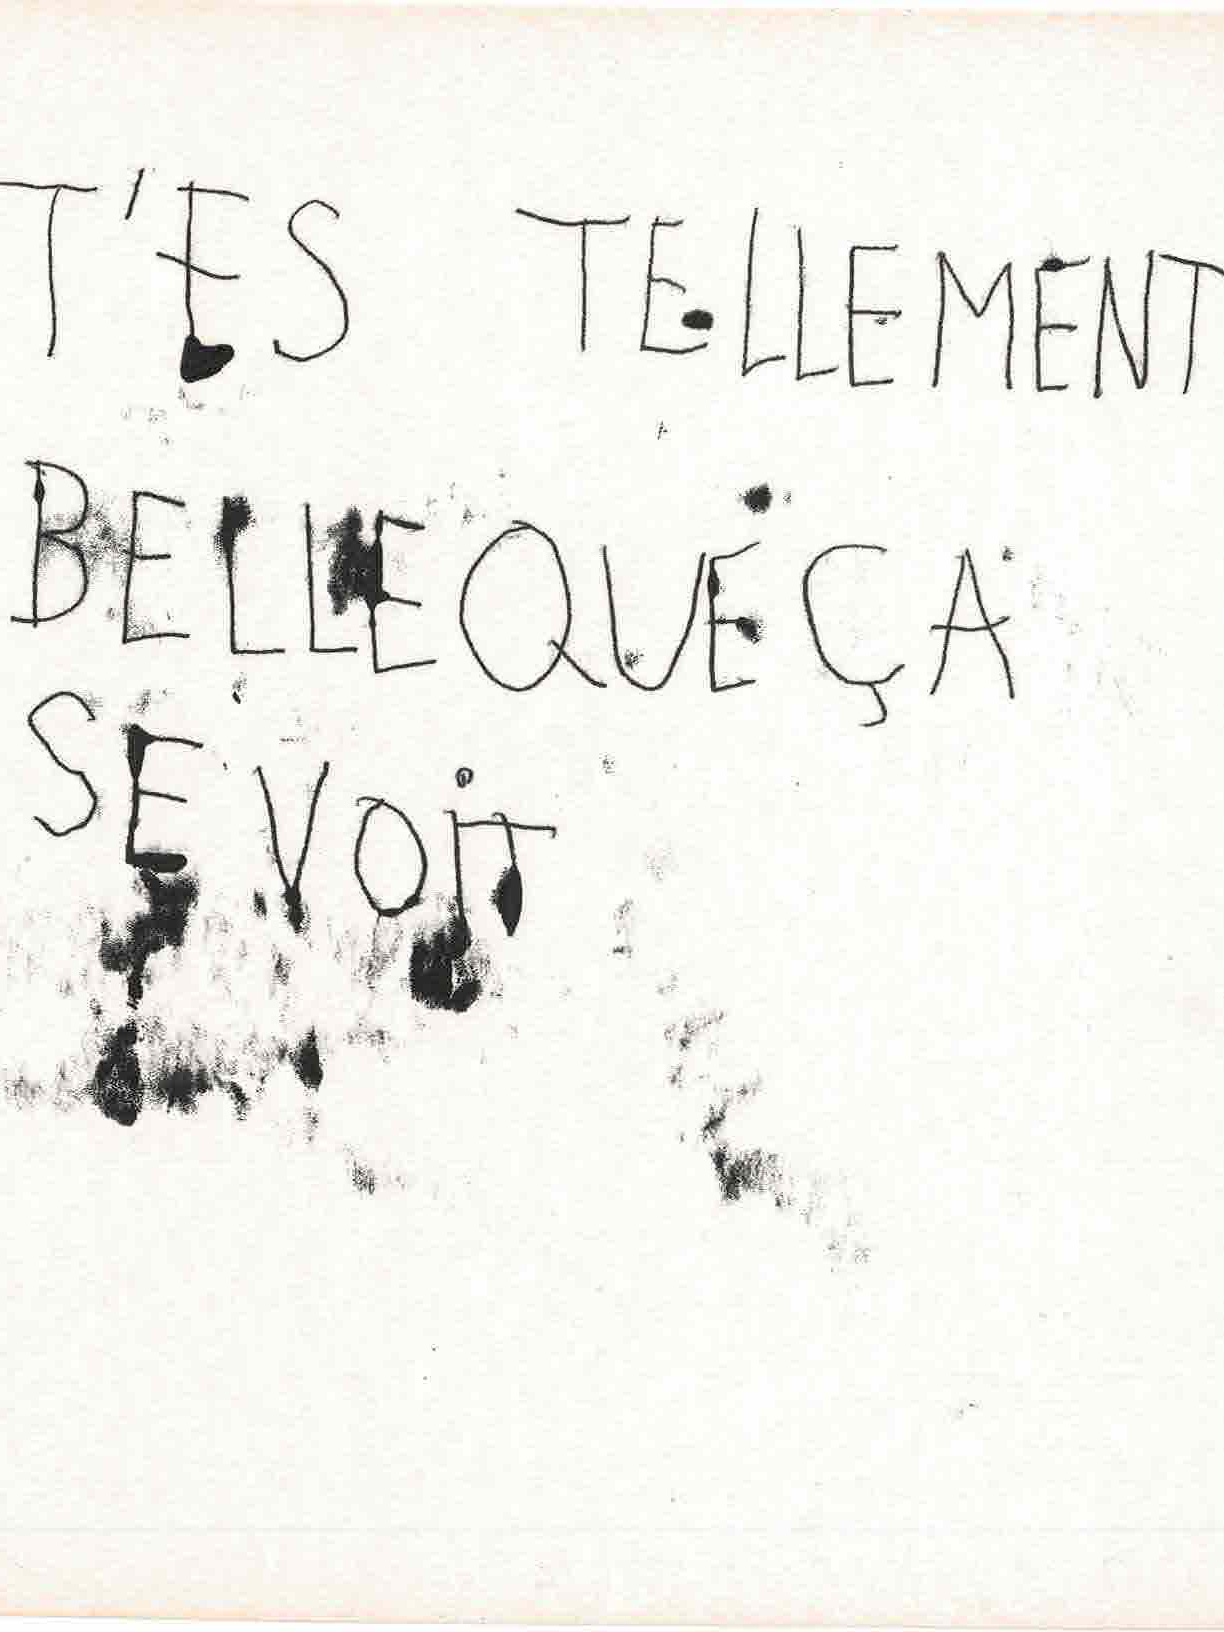 T'ES TELLEMENT
BELLE QUE ÇA
SE VOiT